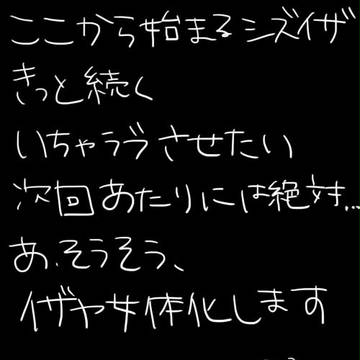 ここから始まるシズイザ
きっと続く
いちゃラブさせたい
次回あたりには絶対...
あ、そうそう、
イザヤ女体化します